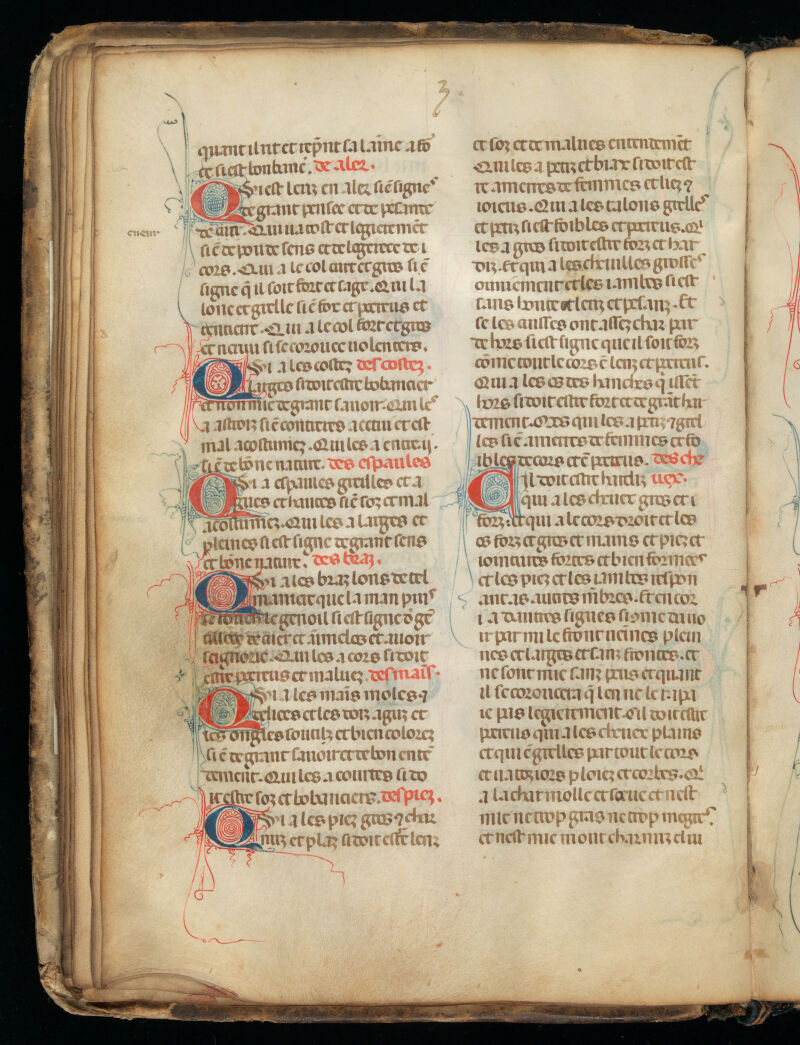 3
quant il rit et rep̄nt sa laine a fō
ce si est bonbanc̄. de aler.
Qi est lenz en aler si ē signe
de grant pensee et de pesante
de air. Qui ua tost et legierem̄t
si ē de pou de sens et de legierece de i
cors. Qui a le col curt et gros si ē
signe q̄ il soit fort et sage. Qui la
lonc et grelle si ē for et pereceus et
Qui a le col fort et gros
et neruu si se corouce uolentiers.
Qi a les costez des costez.
larges si doit estre bobancier
et non mie de grant sauoir. Qui les
a estroiz si ē
mal acostumez. Qui les a entre ij.
si ē de bōne nature. des espaules
Qi a espaules grelles et a
gues et hautes si ē foz et mal
acostumez. Qui les a larges et
pleines si est signe de grant sens
et bōne nature. des braz.
Qi a les braz lons de tel
maniere que la main puis
le genoil si est signe
et auoir
seignorie. Qui les a cors si doit
estre pereceus et maluez. des maīs.
Qi a les maīs moles ⁊
delices et les doiz aguz et
les ongles soutilz et bien colorez
si ē de grant sauoir et de bon entē
dement. Qui les a courtes si do
it estre foz et bobanciers. des piez.
Qi a les piez gros ⁊ char
nuz et plaz si doit estre lenz
cueur
et foz et de malues entendemēt
Qui les a petiz et biax si doit est
re ameires de femmes et liez ⁊
ioieus. Qui a les talons grelles
et petiz si est foibles et pereceus. Q̄i
les a gros si doit estre forz et har
diz. Et qui a les cheuilles grosses
ouniement et les iambes si est
sanz honte et lenz et pesanz. Et
se les cuisses ont assez char par
de hors si est signe que il soit forz
cōme tout le cors ē lenz et pereceus.
Qui a les os des hanches q̄ issēt
hors si doit estre fort et de grāt har
dement. Mes qui les a petiz ⁊ grel
les si ē ameires de femmes et fo
ibles de cors et ē pereceus. des che
Cil doit estre hardiz uex.
qui a les cheuex gros et i
forz. et qui a le cors droit et les
os forz et gros et mains et piez et
iointures fortes et bien formees
et les piez et les iambes respon
anz as autres mēbres. Et encor
i a dautres signes si ome dauo
ir par mi le front ueines plein
nes et larges et sanz fronces. et
ne sont mie sanz peus et quant
il se coroucera q̄ len ne le rapa
ie pas legierement. Cil doit estre
pereceus qui a les cheuex plains
et qui ē grelles par tout le cors
et ploiez et corbes. Q̄i
a la char molle et soeue et nest
mie ne trop gras ne trop megres.
et nest mie mout charnuz el ui